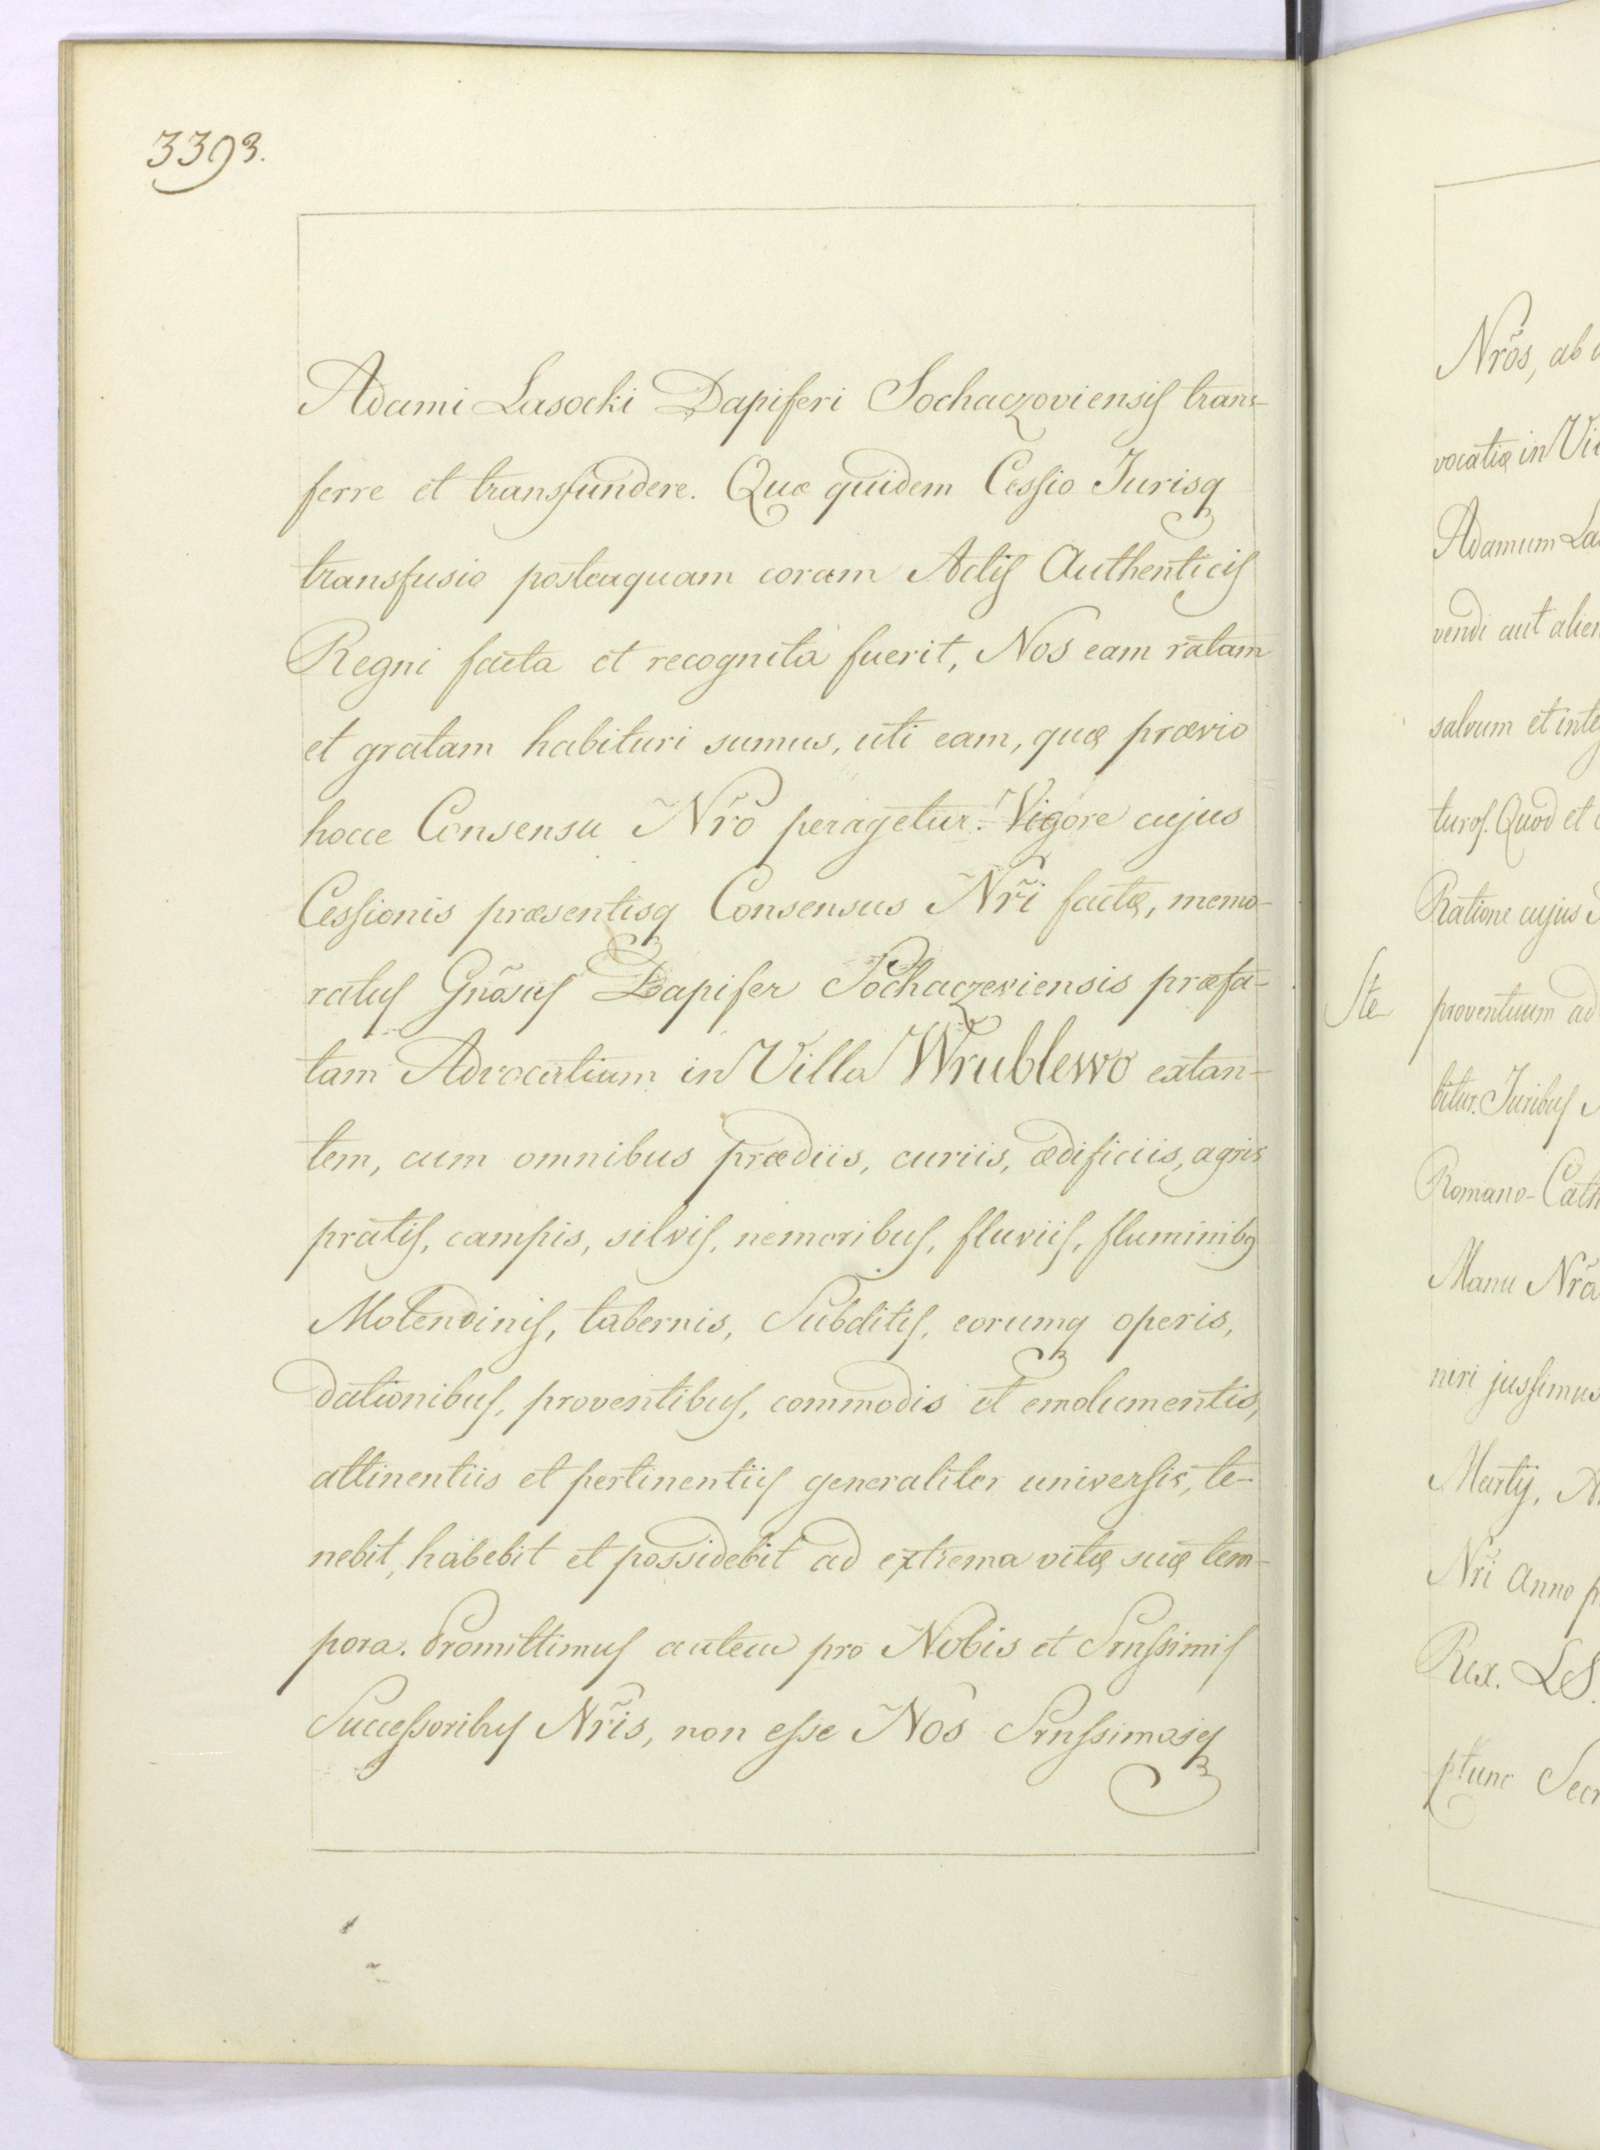 3393.
Adami Lasocki Dapiferi Sochaczoviensis trans-
ferre et transfundere. Quæ quidem Cessio Jurisq
transfusio posteaquam coram Actis Authenticis
Regni facta et recognita fuerit, Nos eam ratam
et gratam habituri sumus, uti eam, quæ prævio
hocce Consensu Nr̃o peragetur. Vigore cujus
Cessionis præsentisq Consensus Nr̃i factæ, memo-
ratus Gnõsus Dapifer Sochaczeviensis præfa-
tam Advocatiam in Villa Wrublewo extan-
tem, cum omnibus prædiis, curiis, ædificiis, agris
pratis, campis, silvis, nemoribus, fluviis, fluminibq
Molendinis, tabernis, Subditis, eorumq operis,
dationibus, proventibus, commodis et emolumentis,
attinentiis et pertinentiis generaliter universis, te-
nebit, habebit et possidebit ad extrema vitæ suæ tem-
pora. Promittimus autem pro Nobis et Srnssimis
Successoribus Nr̃is, non esse Nos Srnssimosq
Nr̃os, ab
vocatiæ in
Adamum
vendi aut
salvum et
turos. Quod et
Ratione cujus
Ste proventuum ad
bitur. Juribus
Romano-
Manu Nr̃a
niri jussimus
Martij,
Nr̃i Anno
Rex. LS.
ptunc